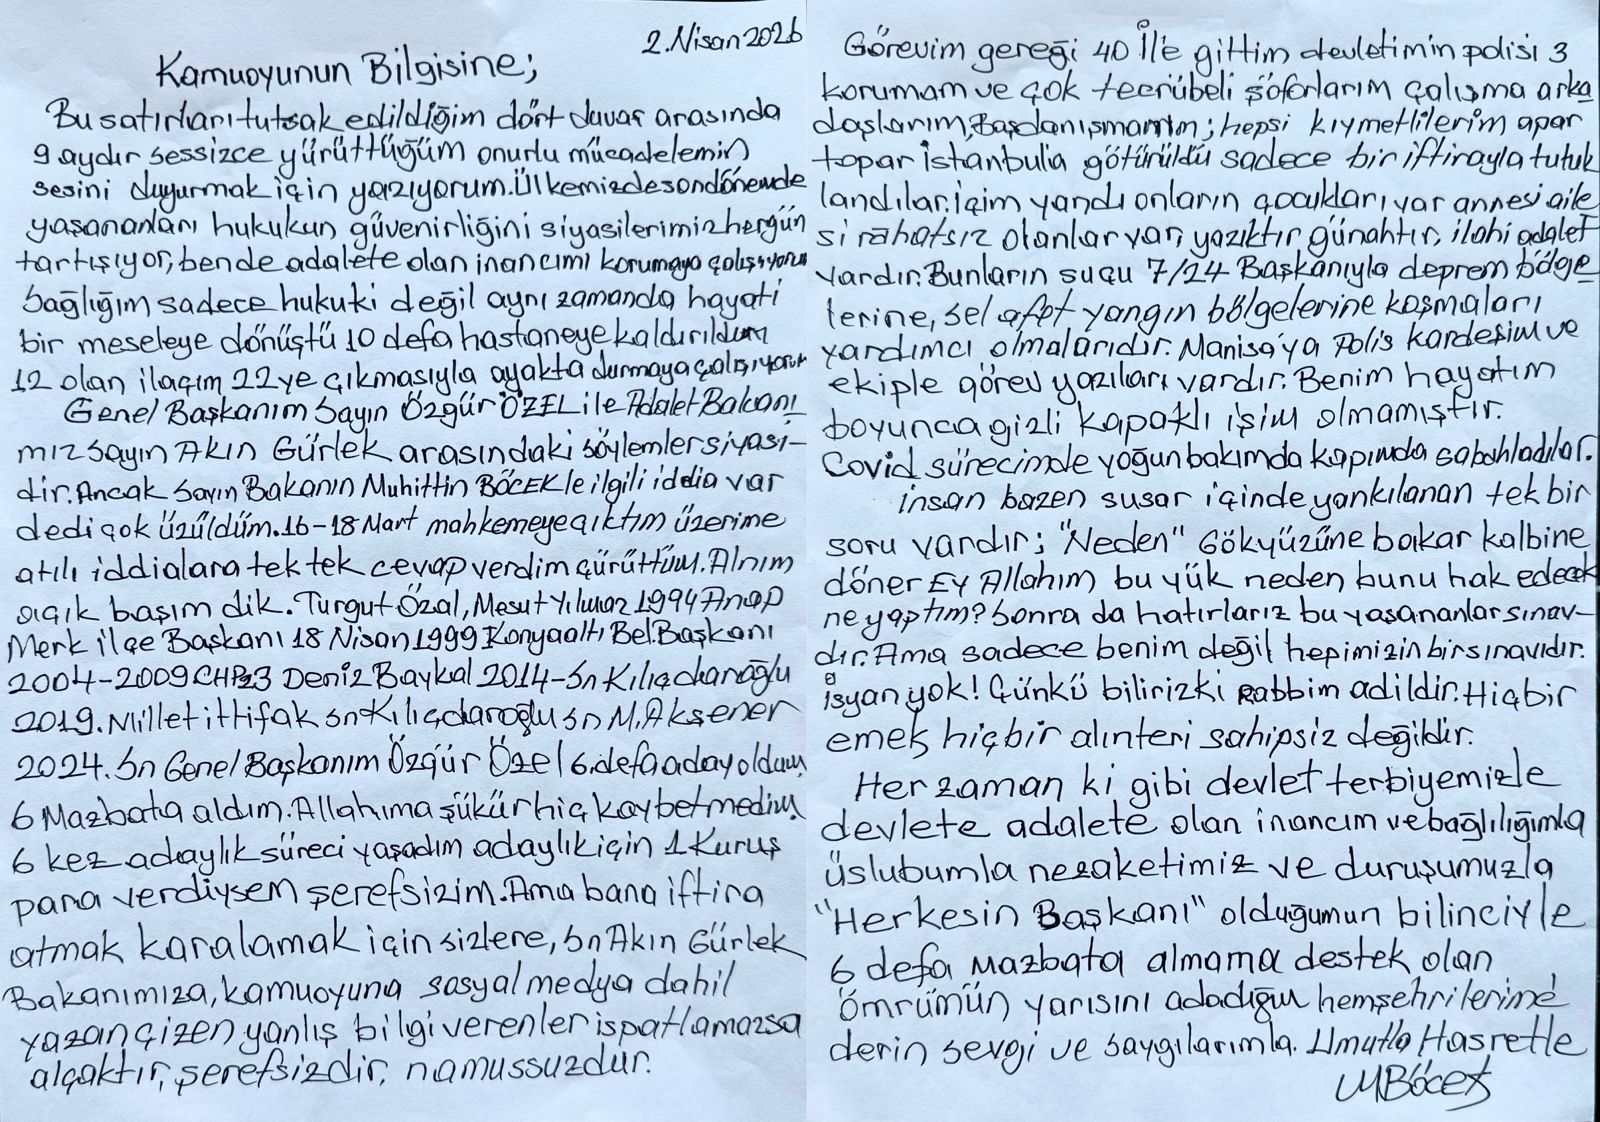 2.Nisan 2026
Kamuoyunun Bilgisine;
Bu satırları tutsak edildiğim dört duvar arasında
9 aydır sessizce yürüttüğüm onurlu mücadelemin
sesini duyurmak için yazıyorum.Ülkemizde son dönemde
yaşananları hukukun güvenirliğini siyasilerimiz hergün
tartışıyor, bende adalete olan inancımı korumaya çalışıyorum
bağlığım sadece hukuki değil aynı zamanda hayati
bir meseleye dönüştü 10 defa hastaneye kaldırıldım
12 olan ilaçım 22 ye çıkmasıyla ayakta durmaya çalışıyorum
Genel Başkanım Sayın Özgür ÖZEL ile Adalet Bakanı
mız Sayın Akın Gürlek arasındaki söylemler siyasi-
dir. Ancak Sayın Bakanın Muhittin BÖCEK le ilgili iddia var
dedi çok üzüldüm. 16-18 Mart mahkemeye çıktım üzerime
atılı iddialara tek tek cevap verdim çürüttüm. Alnım
açık başım dik. Turgut Özal, Mesut Yılmaz 1994 Anap
Merk ilçe Başkanı 18 Nisan 1999 Konyaaltı Bel.Başkanı
2004-2009 CHP Deniz Baykal 2014-Sn Kılıçdaroğlu
2019. Millet ittifak Sn Kılıçdaroğlu Sn M.Akşener
2024. Sn Genel Başkanım Özgür Özel 6.defa aday oldum
6 Mazbata aldım. Allahıma şükür hiç kaybetmedim.
6 kez adaylık süreci yaşadım adaylık için 1 Kuruş
para verdiysem şerefsizim. Ama bana iftira
atmak karalamak için sizlere, Sn Akın Gürlek
Bakanımıza, kamuoyuna sosyal medya dahil
yazan çizen yanlış bilgi verenler ispatlamazsa
alçaktır, şerefsizdir, namussuzdur.
Görevim gereği 40 İl'e gittim devletimin polisi 3
korumam ve çok tecrübeli şöforlarım çalışma arka
daşlarım, Başdanışmanım; hepsi kıymetlilerim apar
topar istanbula götürüldü sadece bir iftirayla tutuk
landılar. içim yandı onların çocukları var annesi aile
si rahatsız olanlar var, yazıktır günahtır, ilahi adalet
vardır. Bunların suçu 7/24 Başkanıyla deprem bölge
lerine, sel afet yangın bölgelerine koşmaları
yardımcı olmalarıdır. Manisa'ya Polis kardeşim ve
ekiple görev yazıları vardır. Benim hayatım
boyunca gizli kapaklı işim olmamıştır.
Covid sürecimde yoğun bakımda kapımda sabahladılar.
insan bazen susar içinde yankılanan tek bir
soru vardır; "Neden" Gökyüzüne bakar kalbine
döner Ey Allahım bu yük neden bunu hak edecek
ne yaptım? Sonra da hatırlarız bu yaşananlar sınav-
dır. Ama sadece benim değil hepimizin bir sınavıdır.
isyan yok! Çünkü biliriz ki Rabbim adildir. Hiçbir
emek hiçbir alınteri sahipsiz değildir.
Her zaman ki gibi devlet terbiyemizle
devlete adalete olan inancım ve bağlılığımla
üslubumla nezaketimiz ve duruşumuzla
"Herkesin Başkanı" olduğumun bilinciyle
6 defa Mazbata almama destek olan
ömrümün yarısını adadığım hemşehrilerime
derin sevgi ve saygılarımla. Umutla Hasretle
M.Böcek